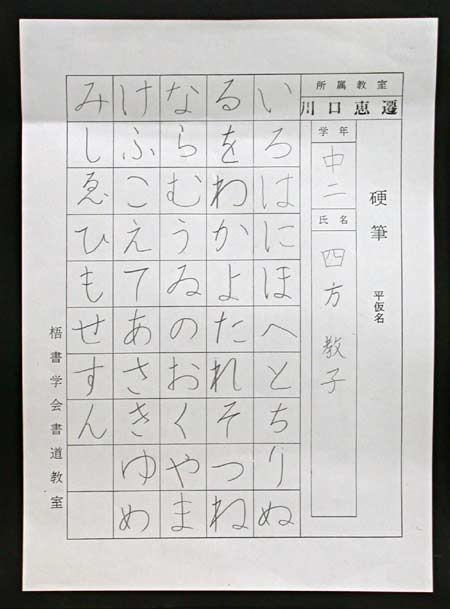 硬筆 平仮名
所属教室
川口恵遷
学年
中二
氏名
四方 教子
いろはにほへとちりぬ
るをわかよたれそつね
ならむうゐのおくやま
けふこえてあさきゆめ
みしゑひもせすん
梧書学会書道教室